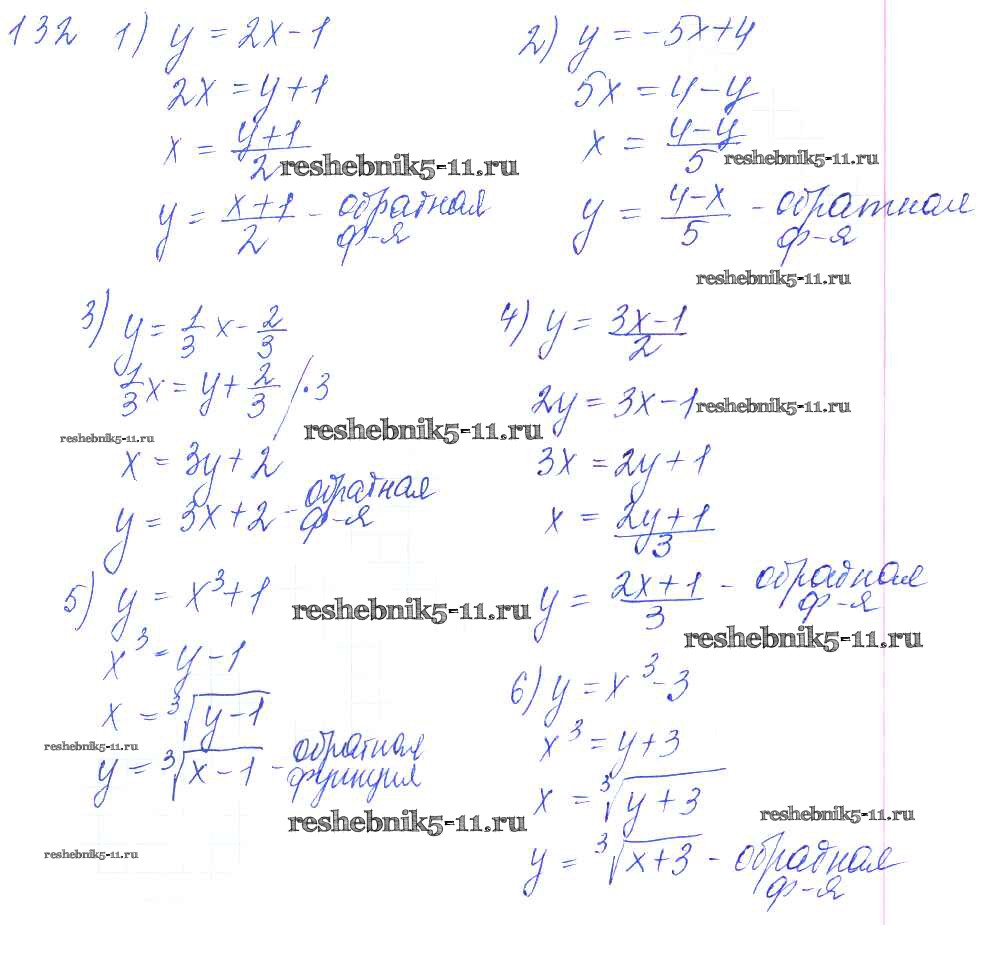 132 1) y = 2x-1
2x = y+1
x = (y+1)/2
reshebnik5-11.ru
y = (x+1)/2 - обратная
ф-я
2) y = -5x+4
5x = 4-y
x = (4-y)/5
reshebnik5-11.ru
y = (4-x)/5 - обратная
ф-я
reshebnik5-11.ru
3) y = 1/3 x - 2/3
1/3 x = y + 2/3 /·3
reshebnik5-11.ru
reshebnik5-11.ru
x = 3y+2
y = 3x+2 - обратная
ф-я
4) y = (3x-1)/2
2y = 3x-1
reshebnik5-11.ru
3x = 2y+1
x = (2y+1)/3
y = (2x+1)/3 - обратная
ф-я
reshebnik5-11.ru
5) y = x³+1
reshebnik5-11.ru
x³ = y-1
x = ³√(y-1)
reshebnik5-11.ru
y = ³√(x-1) - обратная
функция
reshebnik5-11.ru
reshebnik5-11.ru
6) y = x³-3
x³ = y+3
x = ³√(y+3)
reshebnik5-11.ru
y = ³√(x+3) - обратная
ф-я